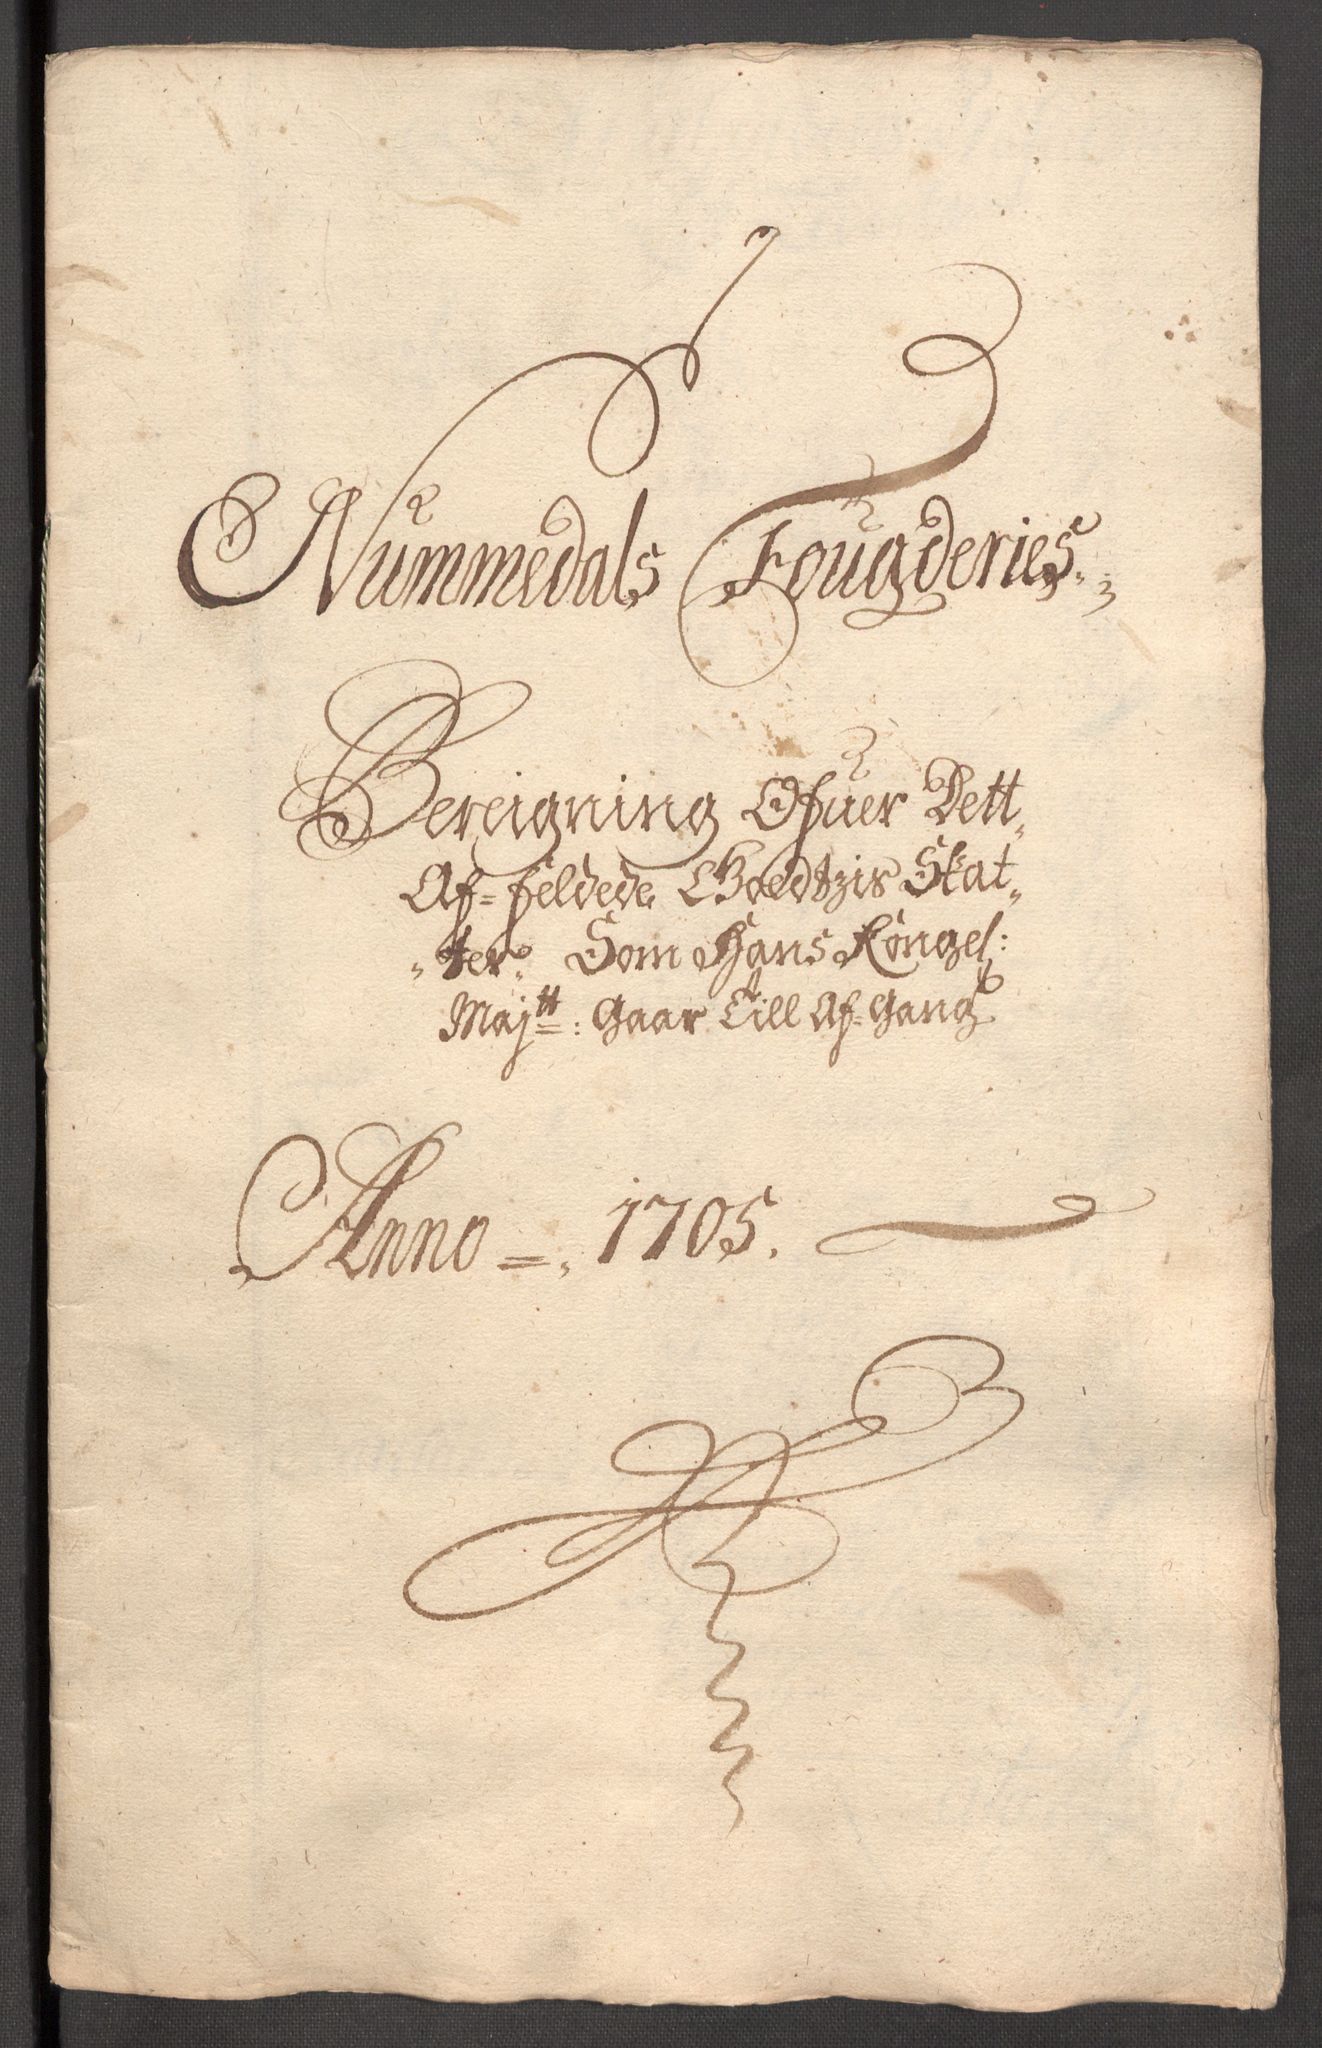 Nummedals Fougderies.
Bereigning Ofuer Dett
Af-feldede Goedtzis Skat-
-ter. Som Hans Kongel:
Maj:tt: Gaar Till Af-Gang
Anno = 1705.